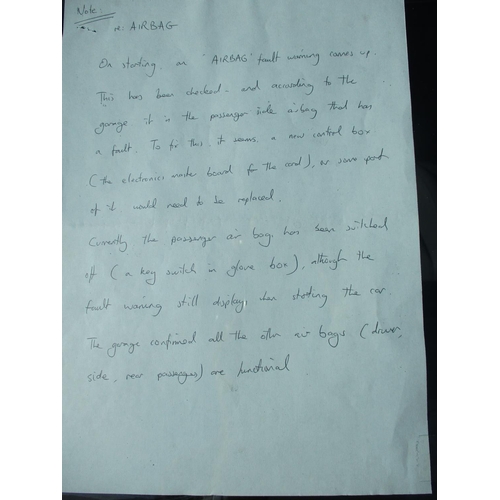 Note:
re: AIRBAG
On starting, an 'AIRBAG' fault warning comes up.
This has been checked, and according to the
garage it is the passenger side airbag that has
a fault. To fix this, it seems, a new control box
(the electronics master board for the card), or some part
of it would need to be replaced.
Currently the passenger air bag has been switched
off (a key switch in glove box), although the
fault warning still displays when starting the car
The garage confirmed all the other air bags (driver,
side, rear passengers) are functional